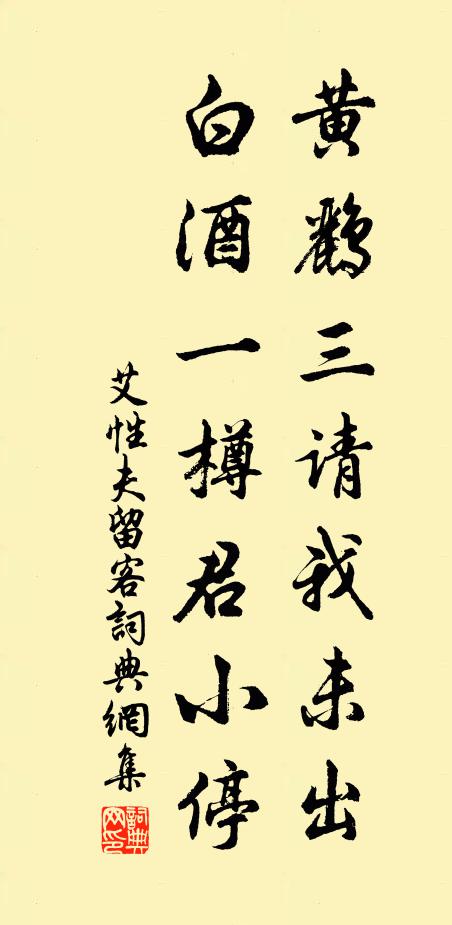 黄鸝三请我未出
白酒一樽君小停
艾性夫留客詞典網集
詞典网印